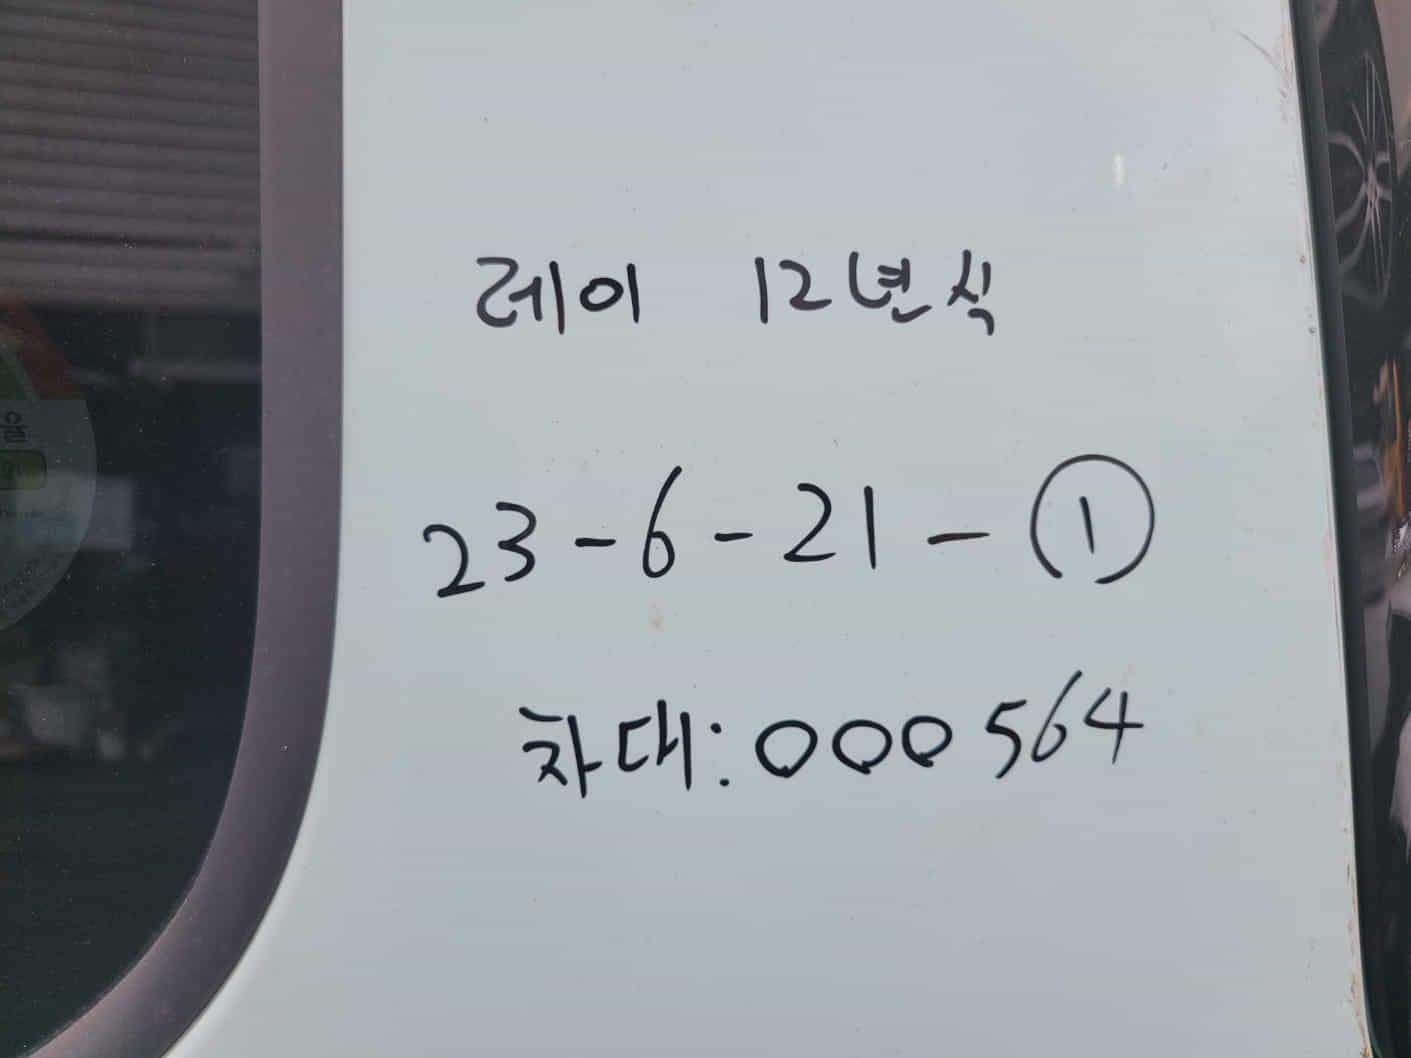 레이 12년식
23-6-21-①
차대:000564